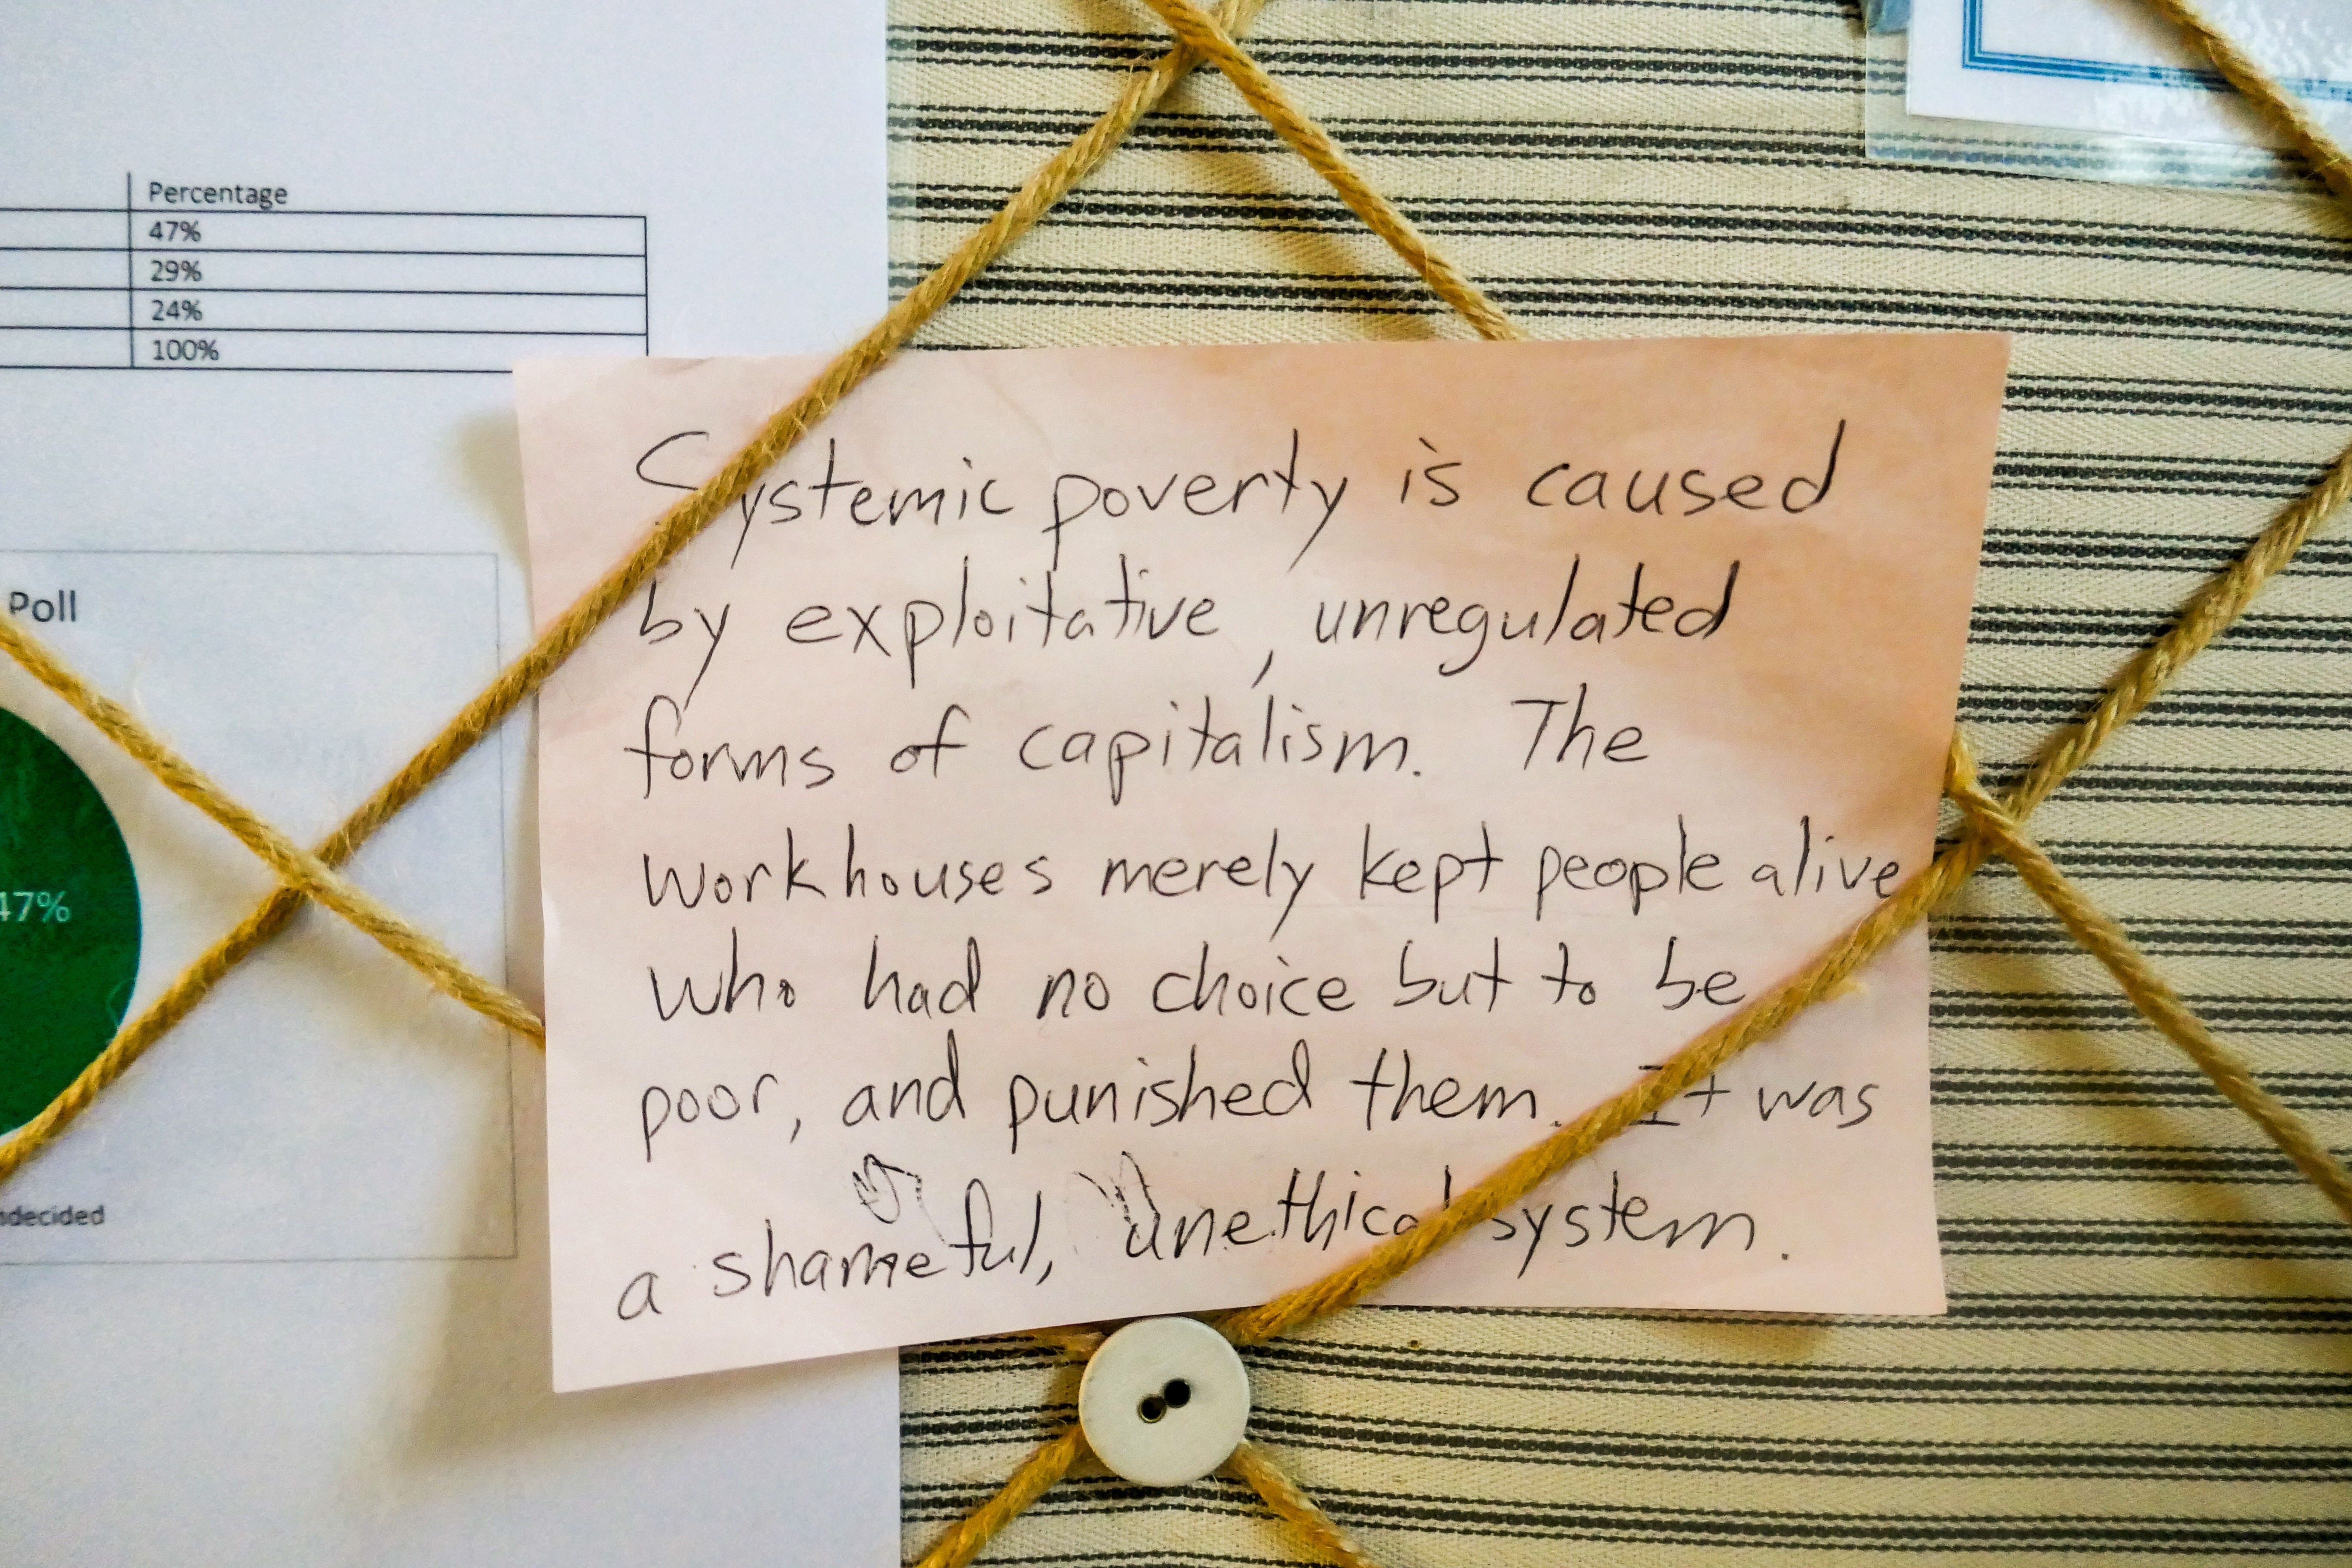 Percentage
47%
29%
24%
100%
Poll
47%
Systemic poverty is caused
by exploitative, unregulated
forms of capitalism. The
workhouses merely kept people alive
who had no choice but to be
poor, and punished them. It was
a shameful, unethical system.